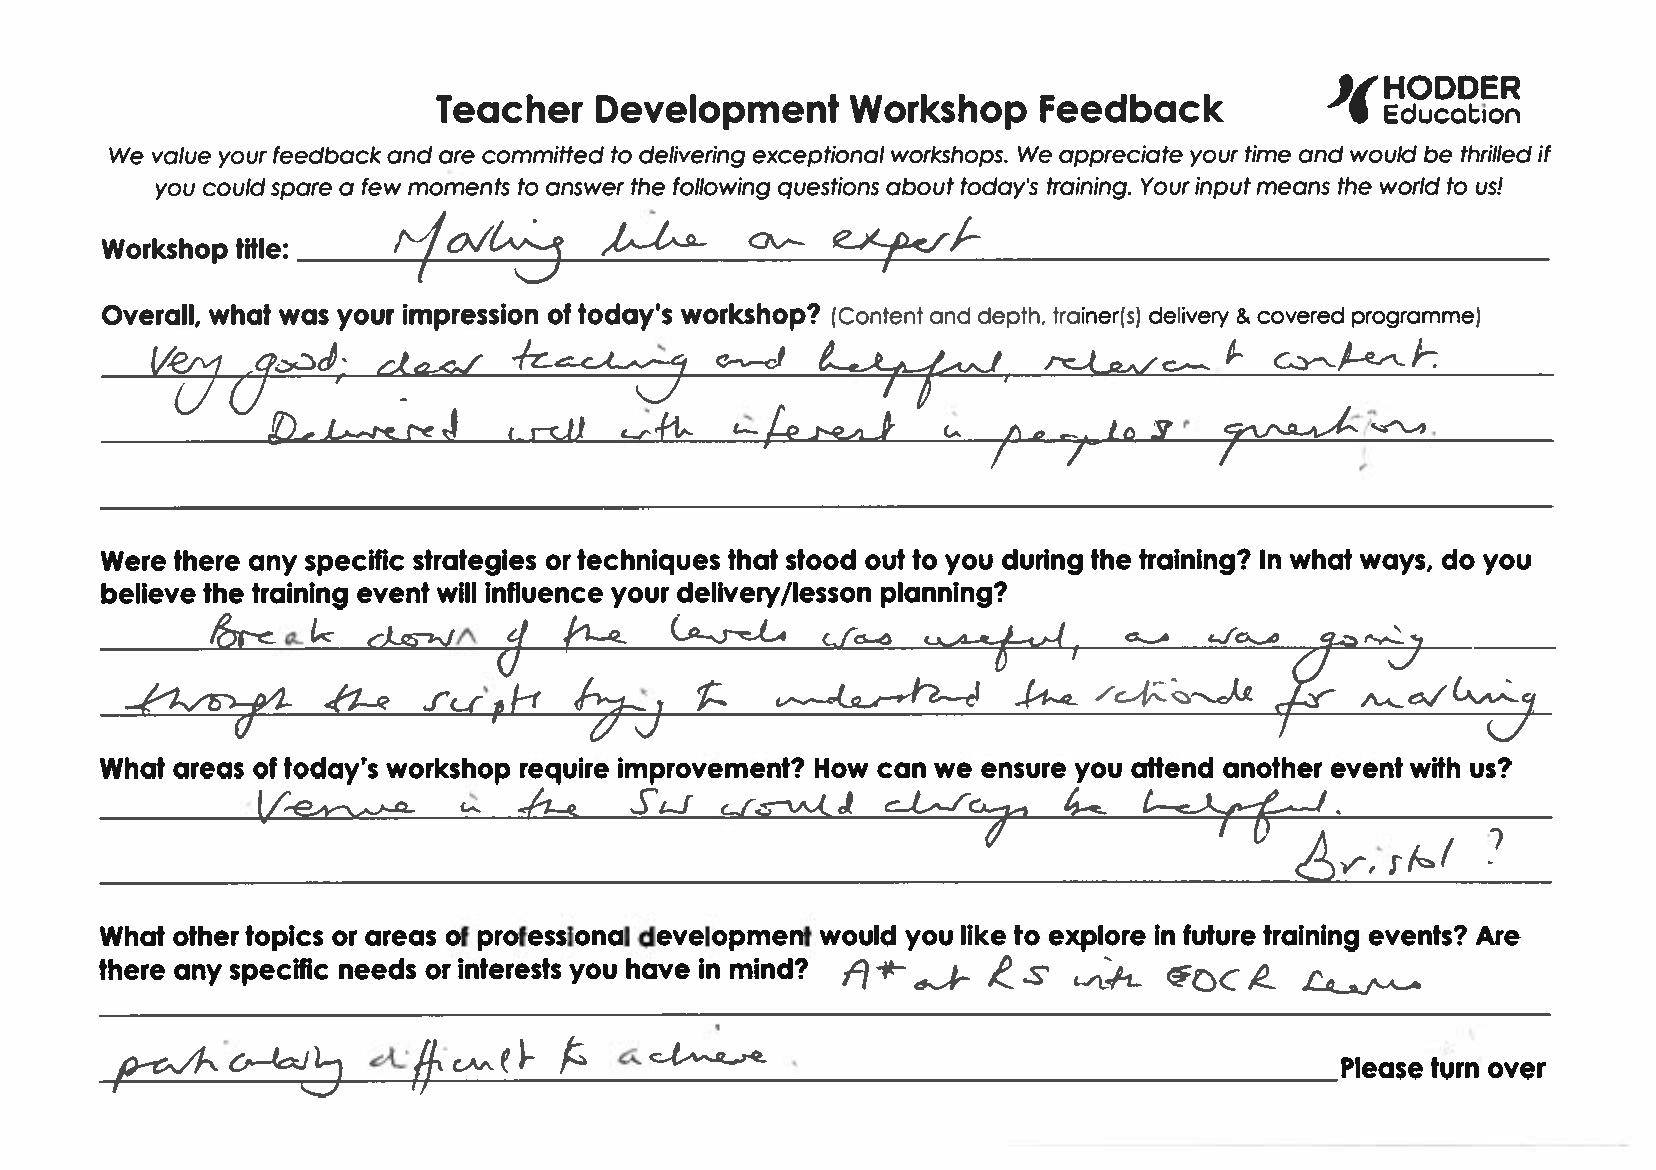 HODDER
Education
Teacher Development Workshop Feedback
We value your feedback and are committed to delivering exceptional workshops. We appreciate your time and would be thrilled if
you could spare a few moments to answer the following questions about today's training. Your input means the world to us!
Workshop title: Marking like an expert
Overall, what was your impression of today's workshop? (Content and depth, trainer(s) delivery & covered programme)
Very good; clear teaching and helpful, relevant content.
Delivered well with interest in peoples' questions.
Were there any specific strategies or techniques that stood out to you during the training? In what ways, do you
believe the training event will influence your delivery/lesson planning?
Break down of the levels was useful, as was going
through the scripts trying to understand the rationale for marking
What areas of today's workshop require improvement? How can we ensure you attend another event with us?
Venue in the SW would always be helpful.
Bristol?
What other topics or areas of professional development would you like to explore in future training events? Are
there any specific needs or interests you have in mind? A* at RS with OCR seems
particularly difficult to achieve.
Please turn over